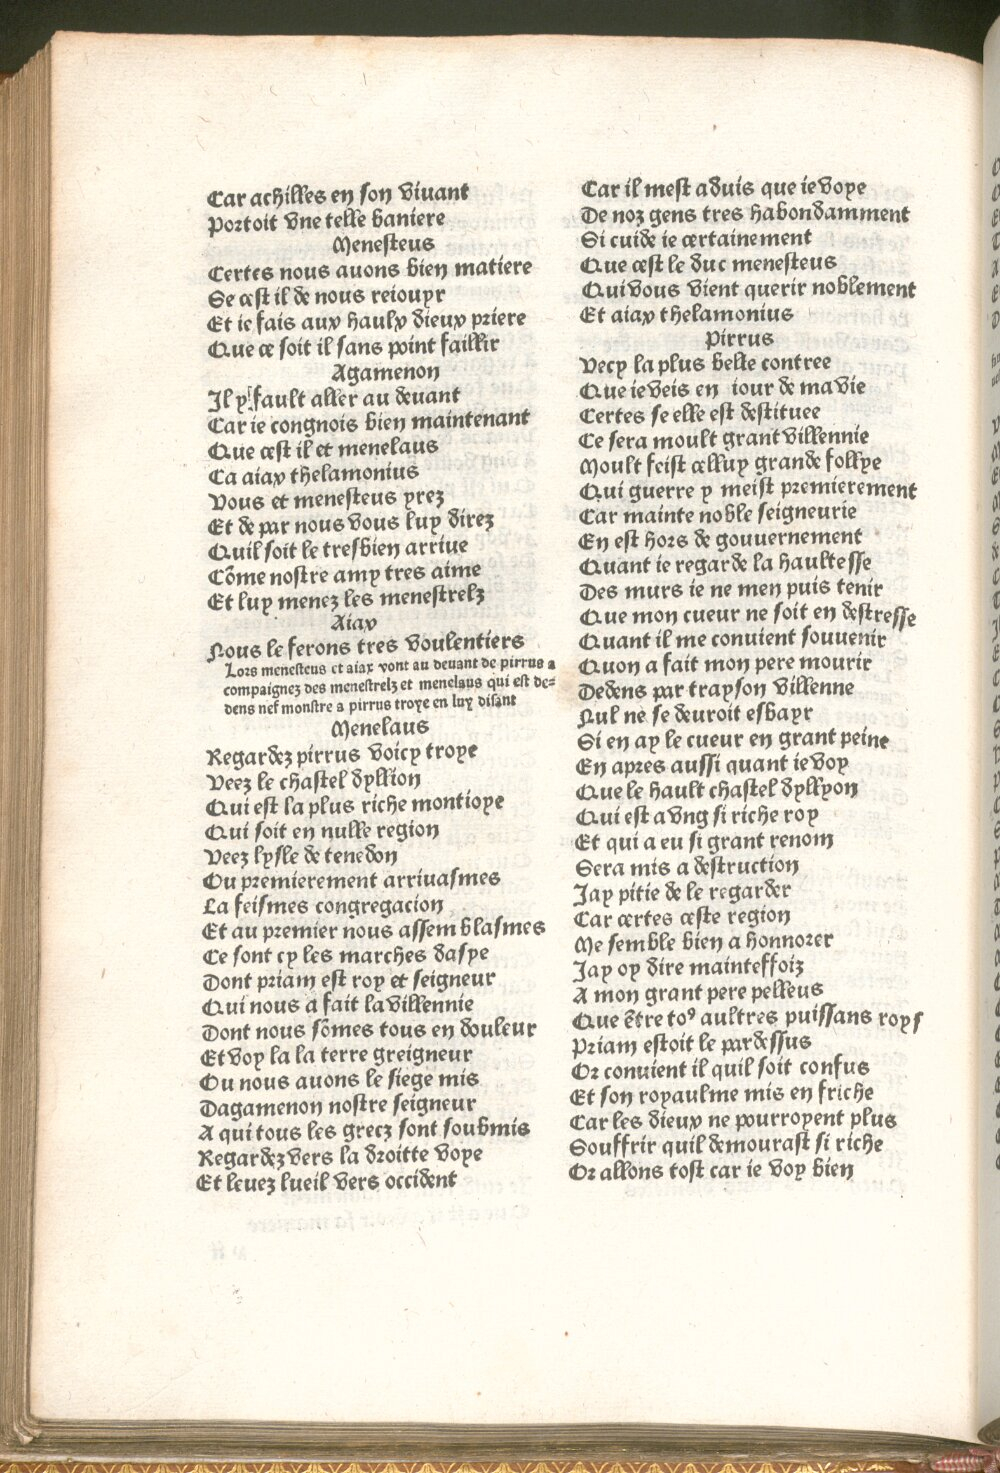 Car achilles en son viuant
Portoit vne telle baniere
Menesteus
Certes nous auons bien matiere
Se cest il de nous reiouyr
Et ie fais aux haulx dieux priere
Que ce soit il sans point faillir
Agamenon
Il y fault aller au deuant
Car ie congnois bien maintenant
Que cest il et menelaus
Ca aiax thelamonius
Vous et menesteus yrez
Et de par nous vous luy direz
Quil soit le tresbien arriue
Cõme nostre amy tres aime
Et luy menez les menestrelz
Aiax
Nous le ferons tres voulentiers
Lors menesteus et aiax vont au deuant de pirrus a
compaignez des menestrelz et menelaus qui est de-
dens nef monstre a pirrus troye en luy disant
Menelaus
Regardez pirrus voicy troye
Veez le chastel dyllion
Qui est la plus riche montioye
Qui soit en nulle region
Veez lysle de tenedon
Ou premierement arriuasmes
La feismes congregacion
Et au premier nous assemblasmes
Ce sont cy les marches dasye
Dont priam est roy et seigneur
Qui nous a fait la villennie
Dont nous sõmes tous en douleur
Et voy la la terre greigneur
Ou nous auons le siege mis
Dagamenon nostre seigneur
A qui tous les grecz sont soubmis
Regardez vers la droitte voye
Et leuez lueil vers occident
Car il mest aduis que ie voye
De noz gens tres habondamment
Si cuide ie certainement
Que cest le duc menesteus
Qui vous vient querir noblement
Et aiax thelamonius
Pirrus
Vecy la plus belle contree
Que ie veis en iour de ma vie
Certes se elle est destituee
Ce sera moult grant villennie
Moult feist celluy grande follye
Qui guerre y meist premierement
Car mainte noble seigneurie
En est hors de gouuernement
Quant ie regarde la haultesse
Des murs ie ne men puis tenir
Que mon cueur ne soit en destresse
Quant il me conuient souuenir
Quon a fait mon pere mourir
Dedens par trayson villenne
Nul ne se deuroit esbayr
Si en ay le cueur en grant peine
En apres aussi quant ie voy
Que le hault chastel dyllyon
Qui est a vng si riche roy
Et qui a eu si grant renom
Sera mis a destruction
Jay pitie de le regarder
Car certes ceste region
Me semble bien a honnorer
Jay oy dire mainteffoiz
A mon grant pere pelleus
Que ẽtre toꝰ aultres puissans roys
Priam estoit le pardessus
Or conuient il quil soit confus
Et son royaulme mis en friche
Car les dieux ne pourroyent plus
Souffrir quil demourast si riche
Or allons tost car ie voy bien